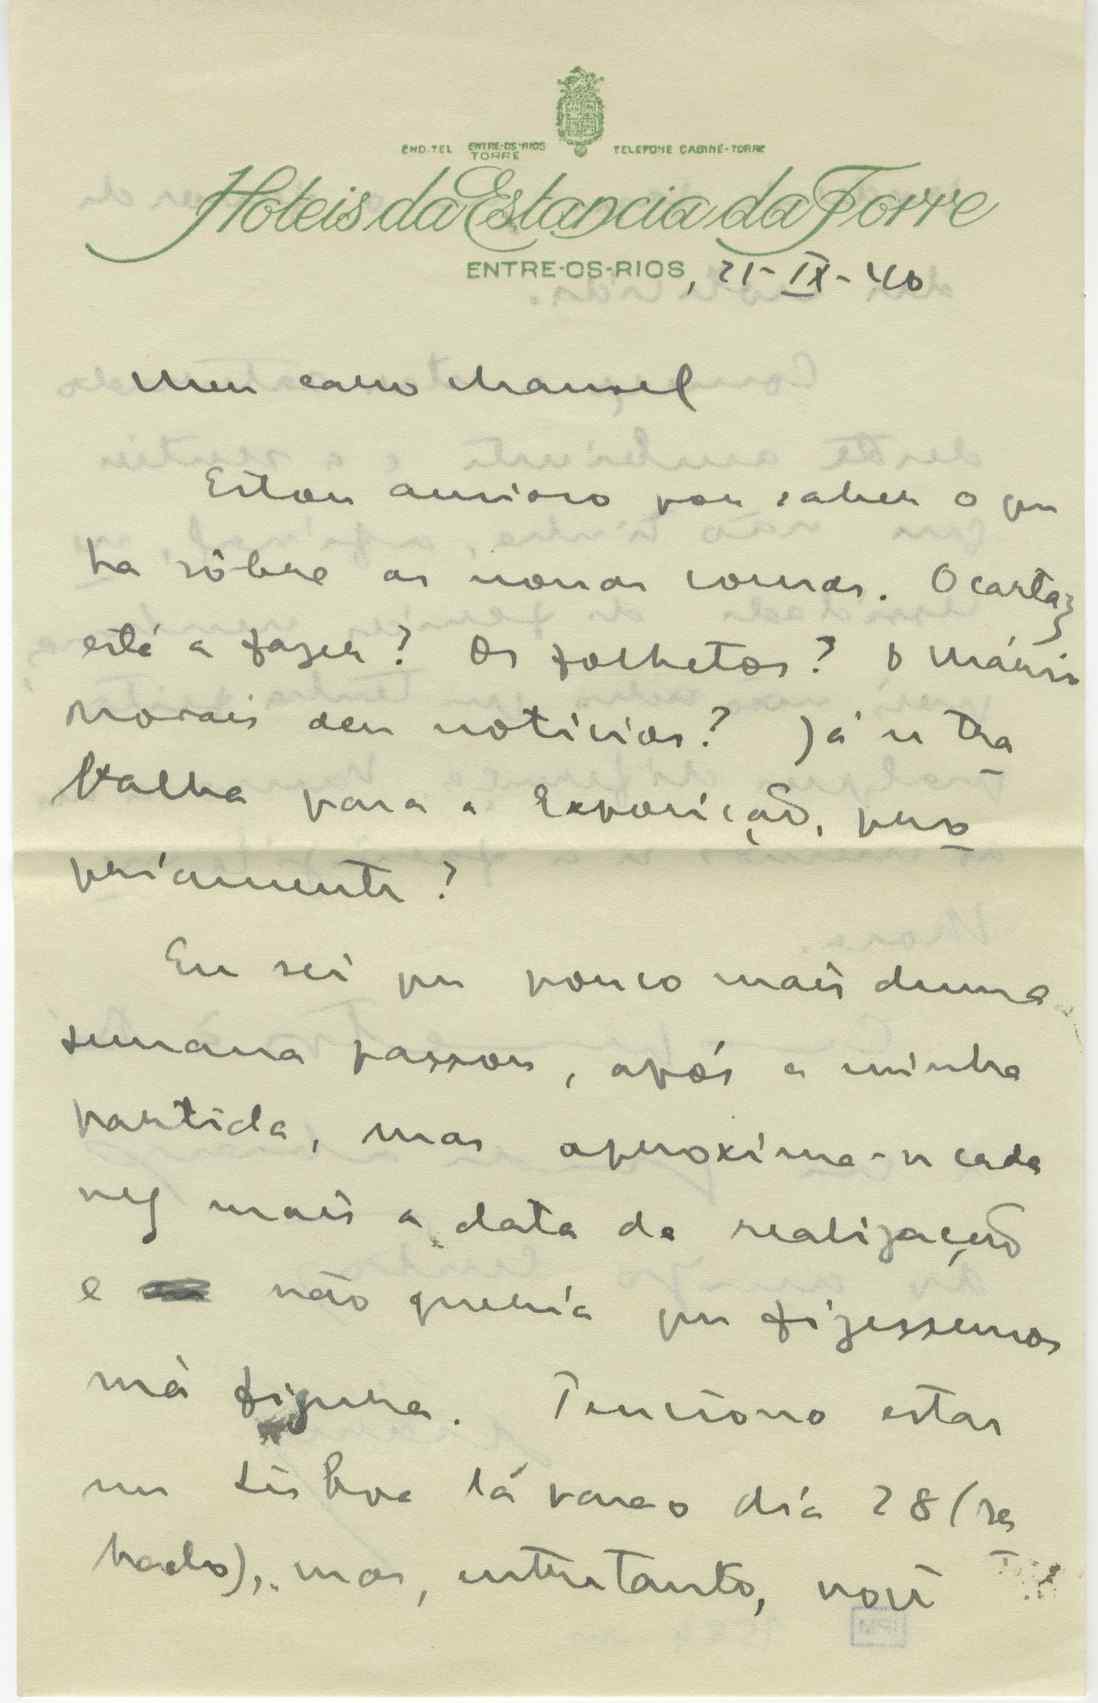 END. TEL. ENTRE-OS-RIOS TORRE TELEFONE CABINE-TORRE
Hoteis da Estancia da Torre
ENTRE-OS-RIOS, 21-IX-40
Meu caro Manuel
Estou ansioso por saber o que
ha sôbre as nossas coisas. O cartaz
está a fazer? Os folhetos? O Mário
Morais deu notícias? Já se tra
balha para a Exposição, pro
priamente?
Eu sei que pouco mais duma
semana passou, após a minha
partida, mas aproxima-se cada
vez mais a data da realização
e não queria que fizessemos
má figura. Tenciono estar
em Lisboa lá para o dia 28 (sa
bado), mas, entretanto, você